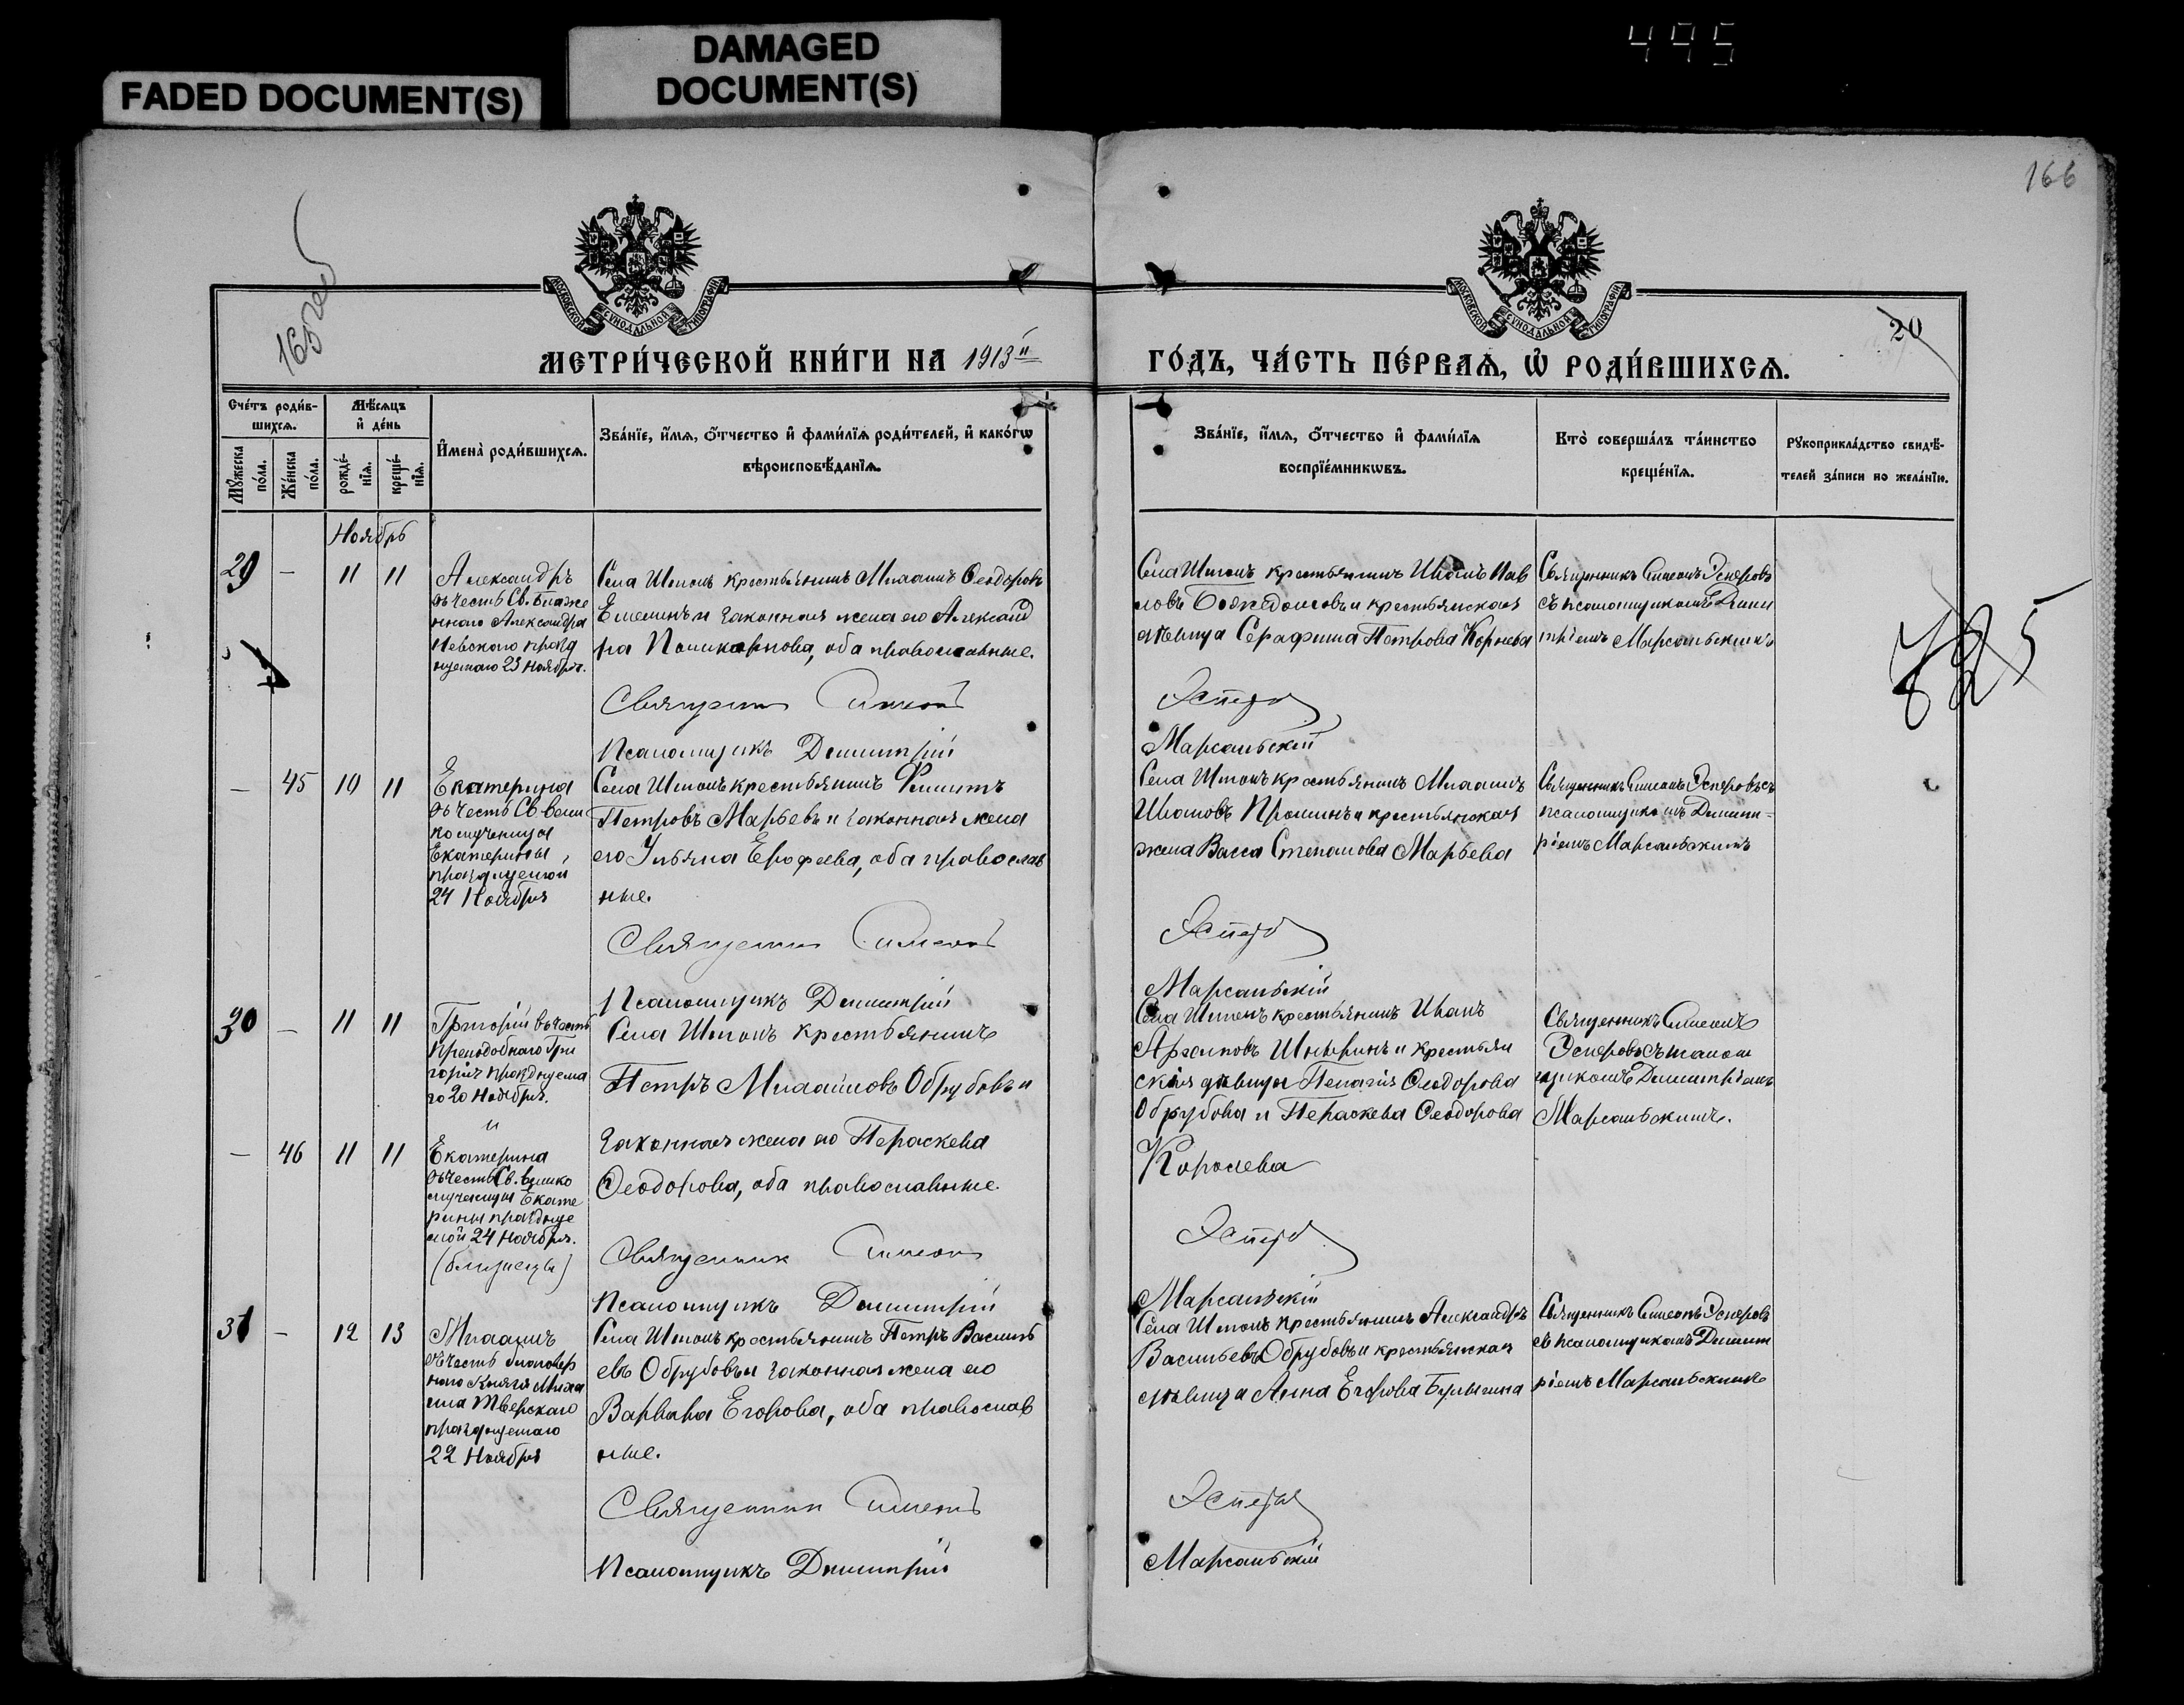 FADED DOCUMENT(S)
DAMAGED
DOCUMENT(S)
495
166
20
МЕТРИ́ЧЕСКОЙ КНИ́ГИ НА 1913й
ГО́ДЪ, ЧА́СТЬ ПЕ́РВАѦ, Ѿ РОДИ́ВШИХСѦ.
Сче́тъ роди́в-
шихсѧ.
Мужеска
по́ла.
Же́нска
по́ла.
Мѣ́сѧцъ
и́ де́нь
рожде́-
нїѧ.
креще́-
нїѧ.
И҆мена̀ роди́вшихсѧ.
Зва́нїе, и҆́мѧ, ѻ҆́тчество и҆ фами́лїѧ роди́телей, и҆ како́гѡ
вѣроисповѣ́данїѧ.
Зва́нїе, и҆́мѧ, ѻ҆́тчество и҆ фами́лїѧ
воспрїе́мникѡвъ.
Кто̀ соверша́лъ та́инство
креще́нїѧ.
Рꙋкоприкла́дство свидѣ́-
телей за́писи по жела́нїю.
Ноябрь
29 — 11 11
Александръ
въ честь Св. Блаже
ннаго Александра
Невскаго празд
нуемаго 23 Ноября.
Села крестьянинъ Михаилъ Ѳеодоровъ
и законная жена его Александ
ра Поликарпова, оба православные.
Священникъ Симеонъ
Псаломщикъ Димитрій
Села крестьянинъ Иванъ Пав
ловъ и крестьянская
дѣвица Серафима Петрова Корнева
Эсперовъ
Марсальскій
Священникъ Симеонъ Эсперовъ
съ псаломщикомъ Дими
тріемъ Марсальскимъ
825
— 45 10 11
Екатерина
въ честь Св. вели
комученицы
Екатерины,
празднуемой
24 Ноября
Села крестьянинъ Филиппъ
Петровъ Марьевъ и законная жена
его Ульяна Ерофеева, оба православ
ные.
Священникъ Симеонъ
Псаломщикъ Димитрій
Села крестьянинъ Михаилъ
Ивановъ Пронинъ и крестьянская
жена Васса Степанова Марьева
Эсперовъ
Марсальскій
Священникъ Симеонъ Эсперовъ съ
псаломщикомъ Димит-
ріемъ Марсальскимъ
30 — 11 11
Григорій въ честь
Преподобнаго Гри
горія празднуема
го 20 Ноября.
и
— 46 11 11
Екатерина
въ честь Св. велико
мученицы Екате
рины празднуе
мой 24 Ноября.
(близнецы)
Села крестьянинъ
Петръ Михайловъ Обрубовъ и
законная жена его Параскева
Ѳеодорова, оба православные.
Священникъ Симеонъ
Псаломщикъ Димитрій
Села крестьянинъ Иванъ
и крестьян
скія дѣвицы Пелагія Ѳеодорова
Обрубова и Параскева Ѳеодорова
Королева
Эсперовъ
Марсальскій
Священникъ Симеонъ
Эсперовъ съ псалом
щикомъ Димитріемъ
Марсальскимъ.
31 — 12 13
Михаилъ
въ честь благовѣр
наго Князя Миха
ила Тверскаго
празднуемаго
22 Ноября
Села крестьянинъ Петръ Василь
евъ Обрубовъ и законная жена его
Варвара Егорова, оба православ
ные.
Священникъ Симеонъ
Псаломщикъ Димитрій
Села крестьянинъ Александръ
Васильевъ Обрубовъ и крестьянская
дѣвица Анна Егорова
Эсперовъ
Марсальскій
Священникъ Симеонъ Эсперовъ
съ псаломщикомъ Димит
ріемъ Марсальскимъ